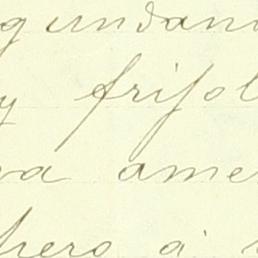 gundan
y frijol
va ame
pero á